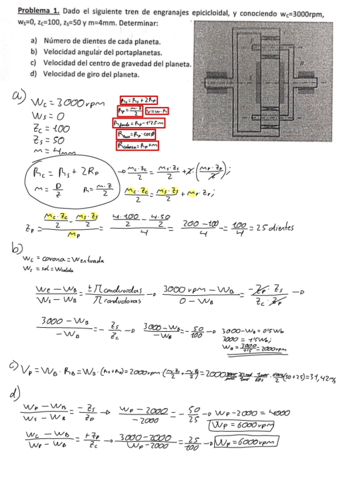 Problema 1. Dado el siguiente tren de engranajes epicicloidal, y conociendo wc=3000rpm,
ws=0, zc=100, zs=50 y m=4mm. Determinar:
a) Número de dientes de cada planeta.
b) Velocidad angular del portaplanetas.
c) Velocidad del centro de gravedad del planeta.
d) Velocidad de giro del planeta.
a)
Wc = 3000 rpm
Ws = 0
Zc = 100
Zs = 50
m = 4mm
Rc = Rs + 2Rp
Rc = Rs + 2Rp → mc·Zc/2 = ms·Zs/2 + 2(mp·Zp/2);
R = m·Z/2
mc·Zc/2 = ms·Zs/2 + mp·Zp;
Zp = (mc·Zc/2 - ms·Zs/2)/mp = (4·100/2 - 4·50/2)/4 = (200-100)/4 = 100/4 = 25 dientes
b)
Wc = corona = Wentrada
Ws = sol = Wsalida
(Wc - WB)/(Ws - WB) = ±π conducidas/π conductoras → (3000 rpm - WB)/(0 - WB) = -Zp Zs/Zc Zp →
(3000 - WB)/(-WB) = -Zs/Zc → (3000 - WB)/(-WB) = -50/100 → 3000 - WB = 0.5 WB
3000 = 1.5 WB;
WB = 3000/1.5 = 2000 rpm
c) Vp = WB · RB = WB · (Rs+Rp) = 2000 rpm (ms·Zs/2 + mp·Zp/2) = 2000 (50+25) = 31,42 m/s
d)
(Wp - WB)/(Ws - WB) = -Zs/Zp → (Wp - 2000)/(-2000) = -50/25 → Wp - 2000 = 4000
Wp = 6000 rpm
(Wc - WB)/(Wp - WB) = +Zp/Zc → (3000 - 2000)/(Wp - 2000) = 25/100 → Wp = 6000 rpm